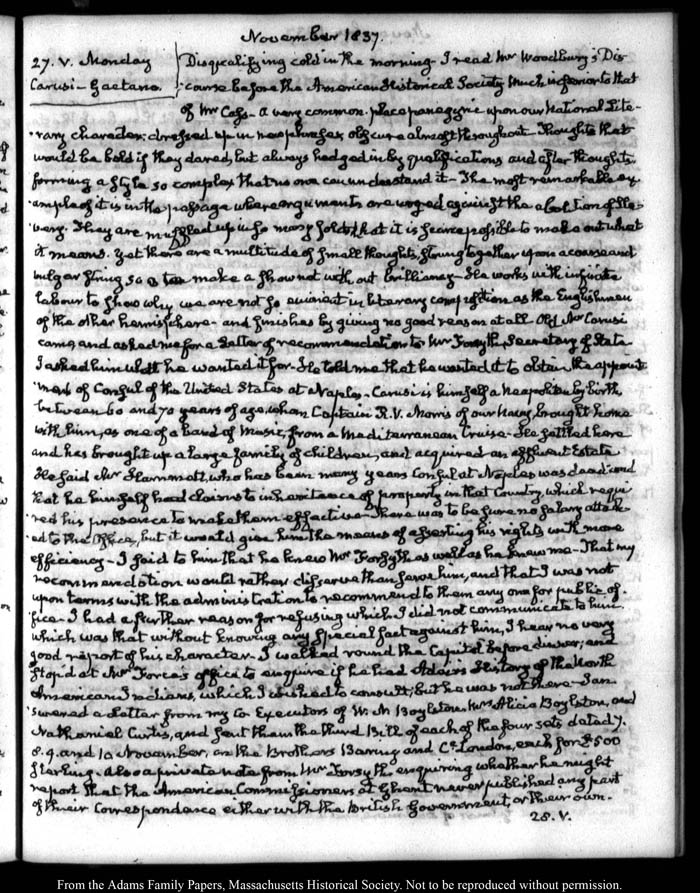 November 1837.
27. V. Monday
Carusi - Gaetano.
Disqualifying cold in the morning - I read Mr Woodbury's Dis-
course before the American Historical Society much inferior to that
of Mr Cass - A very common-place panegyric upon our National Lite-
rary character; dressed up in neophrases obscure almost throughout. Thoughts that
would be bold if they dared, but always hedged in by qualifications and after thoughts
forming a style so complex that no one can understand it - The most remarkable ex-
ample of it is in the passage where arguments are urged against the abolition of Sla-
very. They are muffled up in so many folds, that it is scarce possible to make out what
it means. Yet there are a multitude of small thoughts, strung together upon a coarse and
vulgar string so as to make a show not without brilliancy - He works with infinite
labour to show why we are not so eminent in literary composition as the Englishmen
of the other hemisphere - and finishes by giving no good reason at all Old Mr Carusi
came, and asked me for a Letter of recommendation to Mr Forsyth, Secretary of State
I asked him what he wanted it for - He told me that he wanted it to obtain the appoint-
ment of Consul of the United States at Naples - Carusi is himself a Neapolitan by birth,
between 60 and 70 years of age, whom Captain R. V. Morris of our Navy, brought home
with him, as one of a band of Music, from a Mediterranean Cruise - He settled here
and has brought up a large family of children, and acquired an affluent Estate
He said Mr Hammett, who has been many years Consul at Naples was dead and
that he himself had claims to inheritance of property in that Country, which requi-
red his presence to make them effective - There was to be sure no salary attach-
ed to the Office, but it would give him the means of asserting his rights with more
efficiency - I said to him that he knew Mr Forsyth as well as he knew me - That my
recommendation would rather disserve than serve him, and that I was not
upon terms with the administration to recommend to them any one for public of-
fice - I had a further reason for refusing which I did not communicate to him.
which was that without knowing any special fact against him, I hear no very
good report of his character. I walked round the Capitol before dinner; and
stop'd at Mr Force's office to enquire if he had Adair's History of the North
American Indians, which I wished to consult; but he was not there - I an-
swered a Letter from my Co Executors of W. N Boylston, Mrs Alicia Boylston, and
Nathaniel Curtis, and sent them the third Bill of each of the four sets dated 7.
8. 9. and 10 November, on the Brothers Baring and Co. London, each for £500
sterling - Also a private note from Mr Forsyth enquiring whether he might
report that the American Commissioners at Ghent never published any part
of their correspondence either with the British Government, or their own.
28. V.
From the Adams Family Papers, Massachusetts Historical Society. Not to be reproduced without permission.